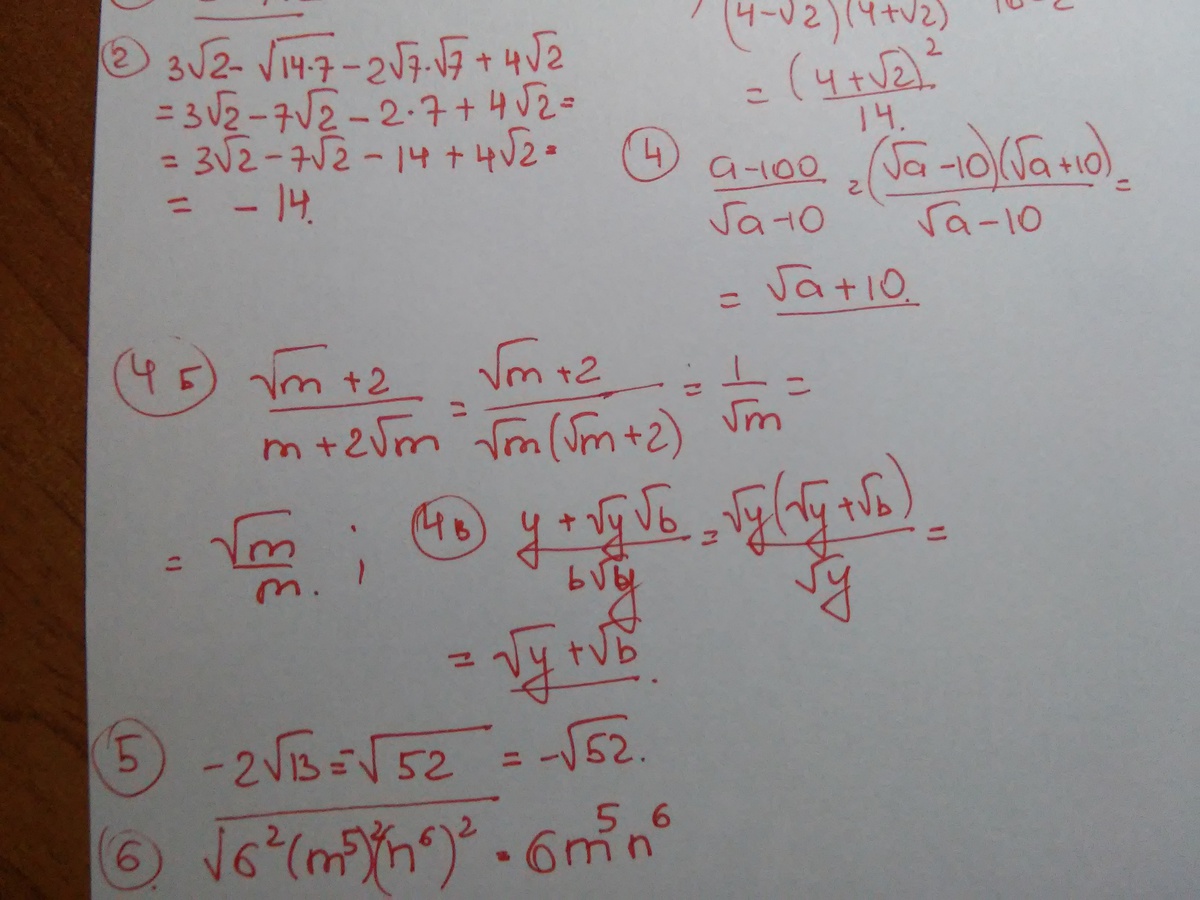 (4-√2)(4+√2)
② 3√2 - √14·7 - 2√7·√7 + 4√2
= 3√2 - 7√2 - 2·7 + 4√2 =
= 3√2 - 7√2 - 14 + 4√2 =
= - 14.
= (4+√2)²/14.
④ (a-100)/(√a-10) = (√a-10)(√a+10)/(√a-10) =
= √a+10.
4 Б (√m+2)/(m+2√m) = (√m+2)/(√m(√m+2)) = 1/√m =
= √m/m. ;
4в (y+√y√b)/ = √y(√y+√b)/√y =
= √y+√b.
⑤ -2√13 = -√52 = -√52.
⑥ √6²(m⁵)²(n⁶)² = 6m⁵n⁶